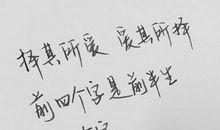 择其所爱 爱其所择
前四个字是前半生